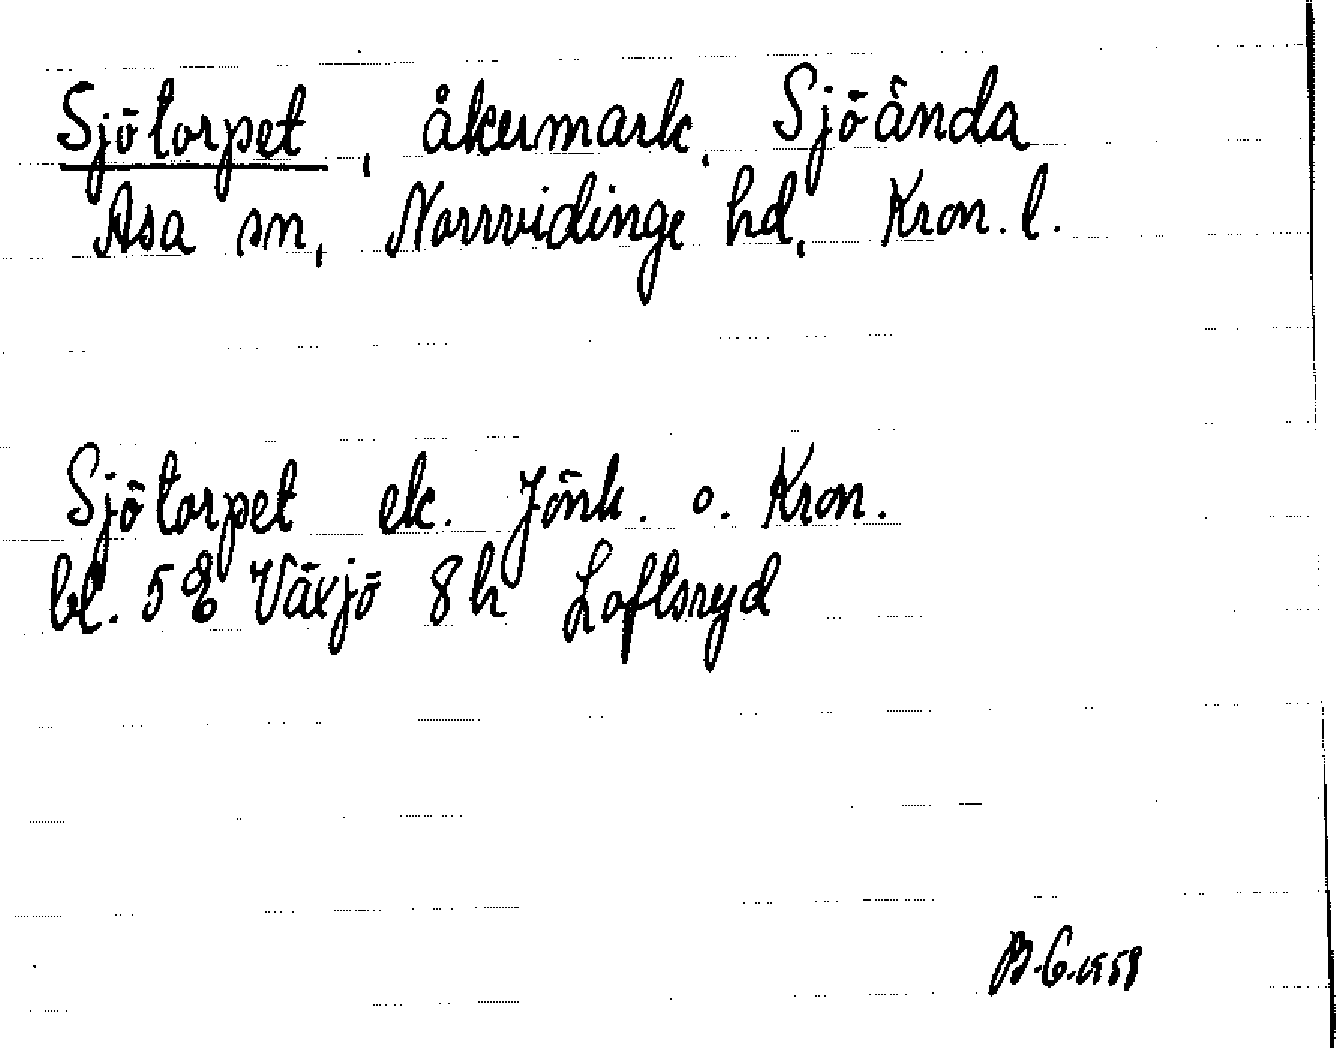 Sjötorpet, åkermark, Sjöända
Asa sn, Norrvidinge hd, Kron. l.
Sjötorpet ek. Jönk. o. Kron.
bl. 58 Växjö 8h Loftsryd
B.G. 1958